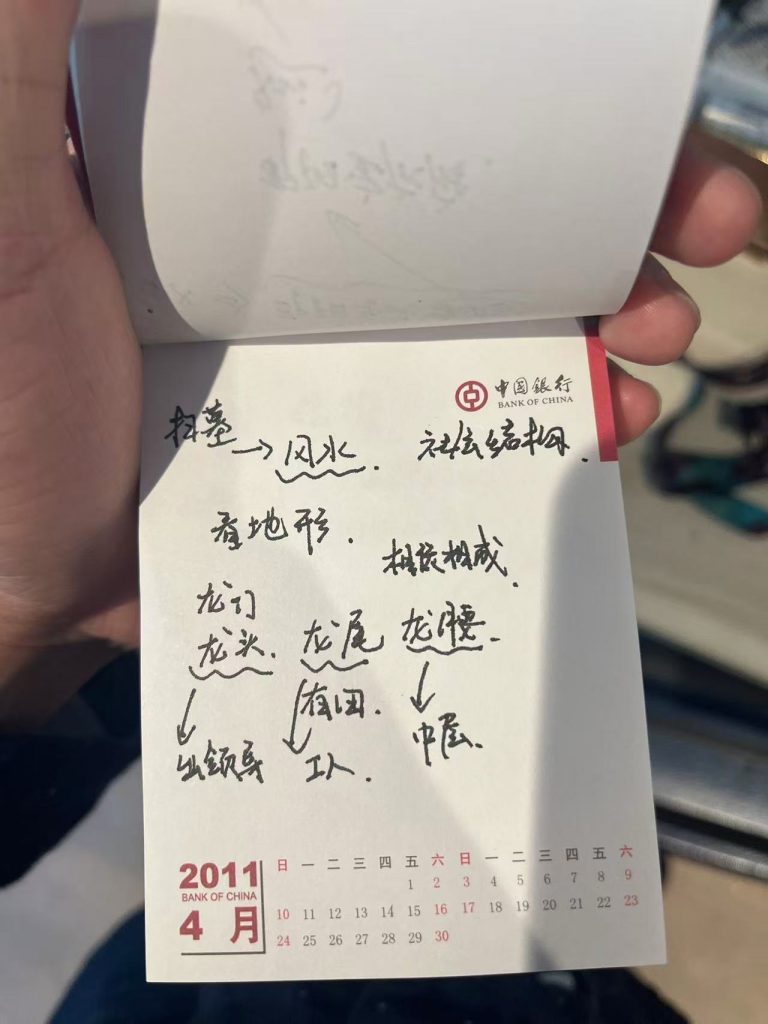 中国银行
BANK OF CHINA
扫墓→风水. 社会结构.
看地形.
相依相成.
龙门
龙头. 龙尾 龙腰.
有田.
出领导 工人. 中层.
2011
BANK OF CHINA
4 月
日 一 二 三 四 五 六 日 一 二 三 四 五 六
1 2 3 4 5 6 7 8 9
10 11 12 13 14 15 16 17 18 19 20 21 22 23
24 25 26 27 28 29 30